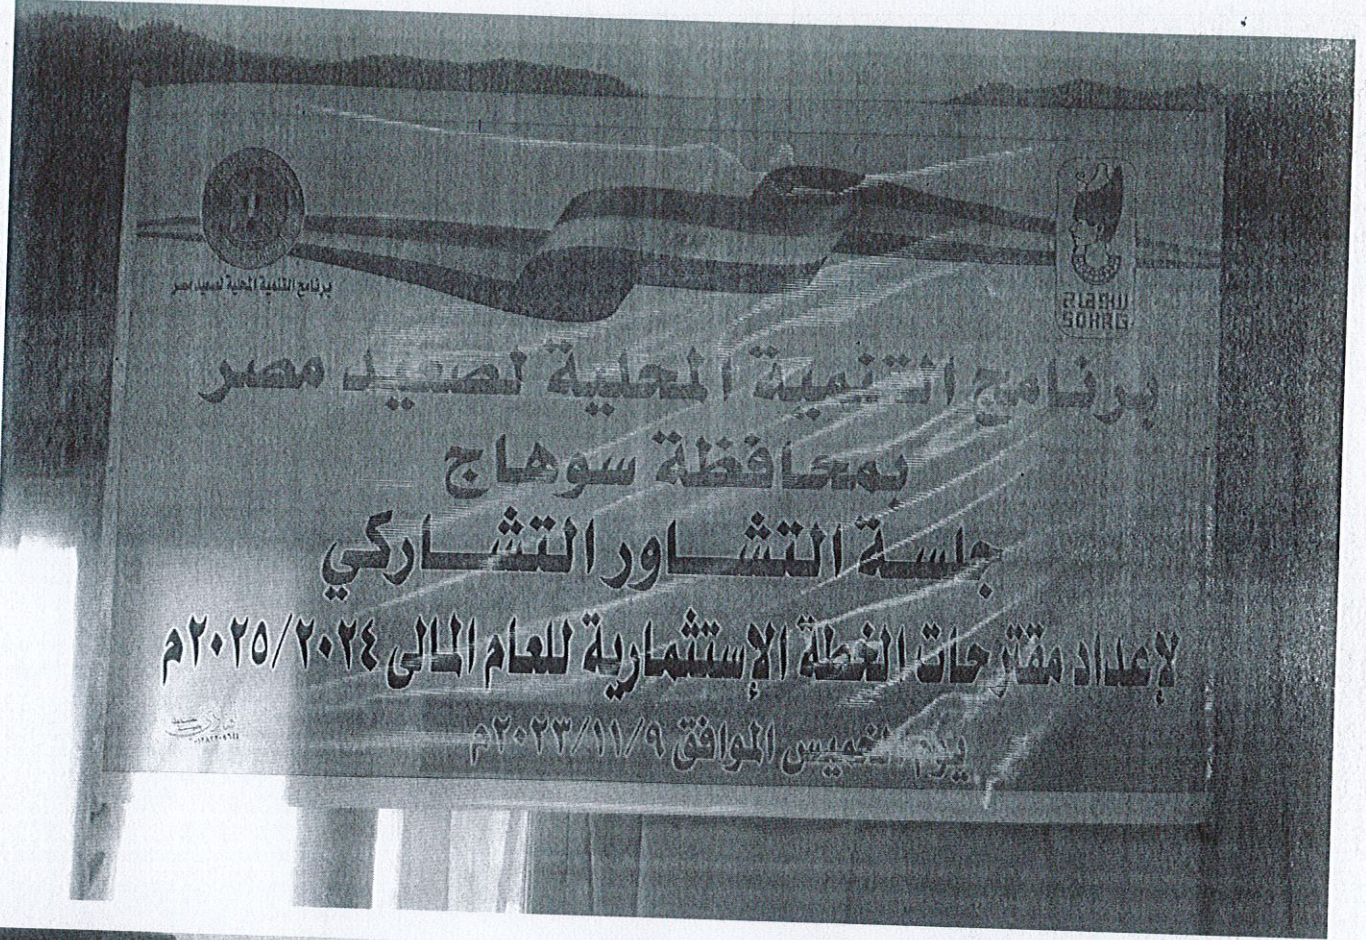 سوهاج
SOHAG
برنامج التنمية المحلية لصعيد مصر
برنامج التنمية المحلية لصعيد مصر
بمحافظة سوهاج
جلسة التشاور التشاركي
لإعداد مقترحات الخطة الإستثمارية للعام المالى ٢٠٢٥/٢٠٢٤م
يوم الخميس الموافق ٢٠٢٣/١١/٩م